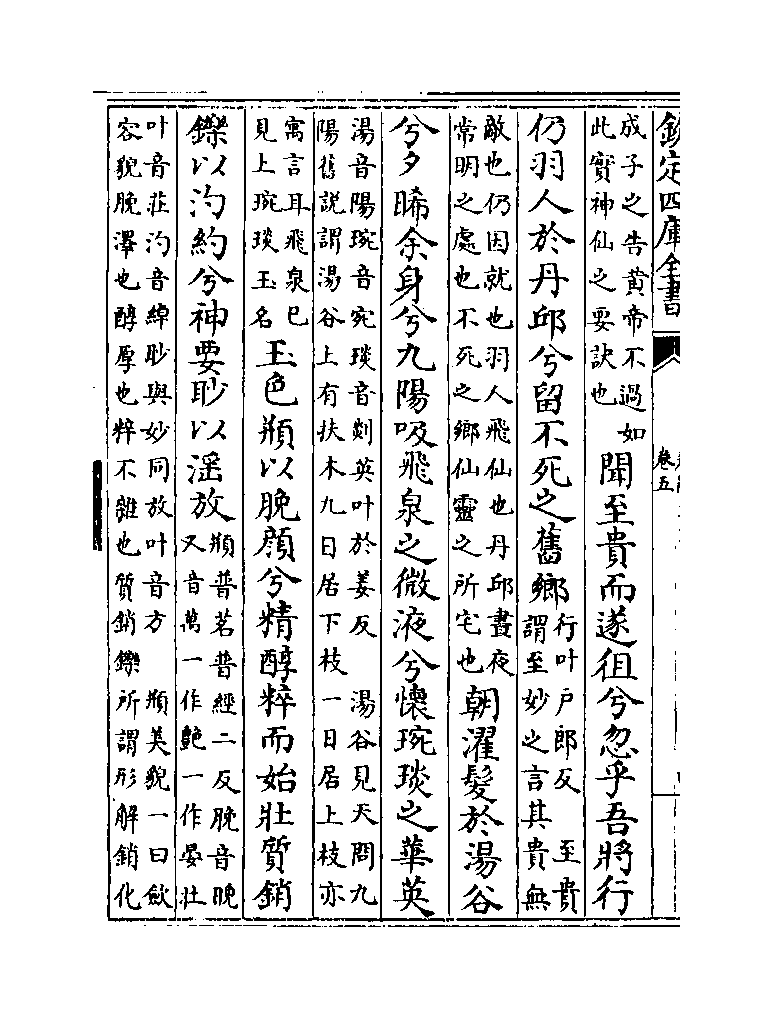 欽定四庫全書
卷五
成子之告黄帝不過如
此實神仙之要訣也
聞至貴而遂徂兮忽乎吾將行
仍羽人於丹邱兮留不死之舊鄉
行叶戸郎反 至貴
謂至妙之言其貴無
敵也仍因就也羽人飛仙也丹邱晝夜
常明之處也不死之鄉仙靈之所宅也
朝濯髮於湯谷
兮夕晞余身兮九陽吸飛泉之微液兮懷琬琰之華英
湯音陽琬音宛琰音剡英叶於姜反 湯谷見天問九
陽舊説謂湯谷上有扶木九日居下枝一日居上枝亦
寓言耳飛泉已
見上琬琰玉名
玉色頩以脕顔兮精醇粹而始壯質銷
鑠以汋約兮神要眇以滛放
頩普茗普經二反脕音晚
又音萬一作艶一作晏壯
叶音莊汋音綽眇與妙同放叶音方 頩美貌一曰歛
容貌脕澤也醇厚也粹不雜也質銷鑠所謂形解銷化